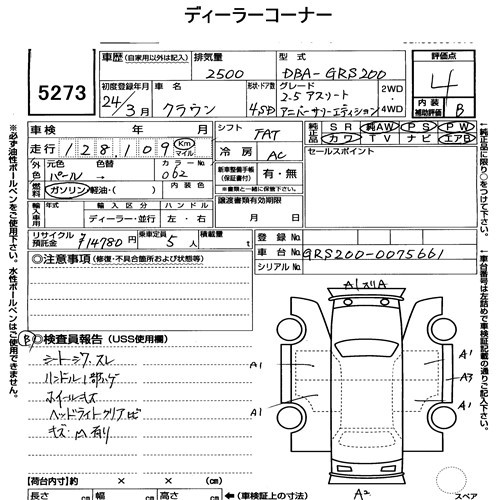 ディーラーコーナー
5273
車歴 (自家用以外は記入) 排気量 型式 評価点
2500 DBA-GRS200 4
初度登録年月 車名 形状・ドア数 グレード 2WD
24/3月 クラウン 4SD 2.5アスリート アニバーサリーエディション 4WD
内装補助評価 B
車検 年 月 シフト FAT
純正品 SR 純AW PS PW
カワ TV ナビ エアB
走行 128,109 Km マイル 冷房 AC
セールスポイント
外色 元色 色替 カラーNo.
パール→ 062
燃料 ガソリン 軽油・( ) 内装色
新車整備手帳(保証書付) 有・無
※書類と一緒に保管して下さい。
輸入車用 年式 輸入区分 ハンドル
ディーラー・並行 左・右
譲渡書類有効期限
月 日
リサイクル預託金 ¥14780円 乗車定員 5人 積載量 t
登録No.
車台No. GRS200-0075661
シリアルNo.
◎注意事項 (修復・不具合箇所および状態等)
◎検査員報告 (USS使用欄)
B
シートシワ.スレ
ハンドル
ホイールキズ
ヘッドライトクリア
キズ.凹有り
A1 A
A1 A1
A3
A1 A1
A2
スペア
【荷台内寸】約 × × (cm)
長さ (cm) 幅 (cm) 高さ (cm) (車検証上の寸法)
※必ず油性ボールペンをご使用下さい。水性ボールペンはご使用できません。
↑純正品に限り○をつけて下さい。
↑車台番号は左詰めで車検証記載の通りご記入下さい。